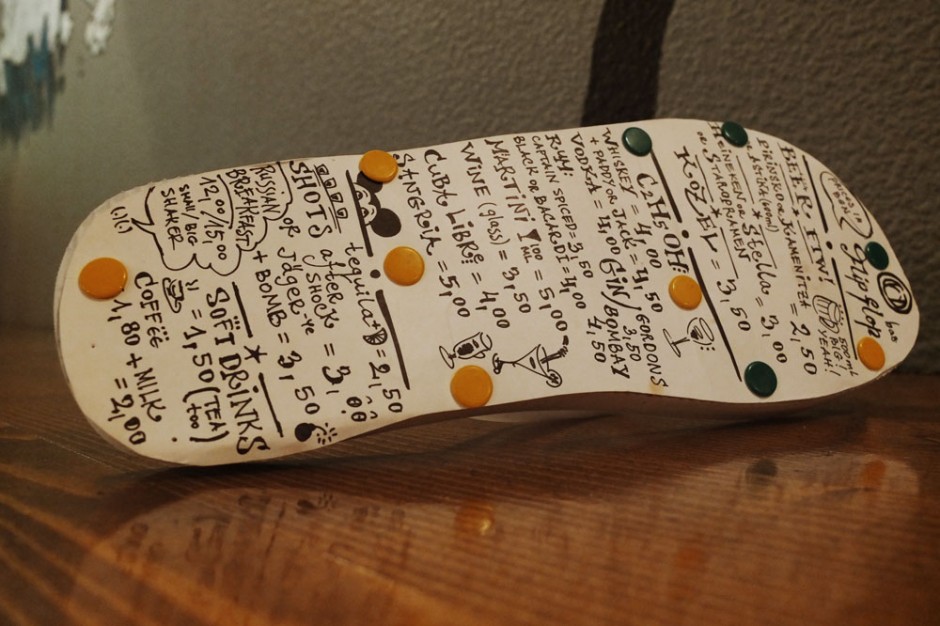 flipflop bar
BEER. PIWI. 500ml BIG! YEAH!
PIRINSKO or KAMENITZA = 2,50
* Stella = 3,00
HEINEKEN or * STAROPRAMEN
KOZEL = 3,50
C2H5OH:
WHISKEY = 4,00
+ PADDY or JACK = 4,50
VODKA = 4,00 GIN / GORDONS 3,50
BOMBAY 4,50
RUM:
CAPTAIN SPICED = 3,50
BLACK or BACARDI = 4,00
MARTINI 100 ML = 5,00
WINE (glass) = 3,50
CUBA LIBRE = 4,00
SANGRIA = 5,00
tequila = 2,50
SHOTS after SHOCK = 3,00
or Jäger
+ BOMB = 3,50
RUSSIAN BREAKFAST
12,00/15,00
SMALL/BIG SHAKER
SOFT DRINKS
= 1,50 (TEA too)
COFFEE 1,80 + MILK = 2,00